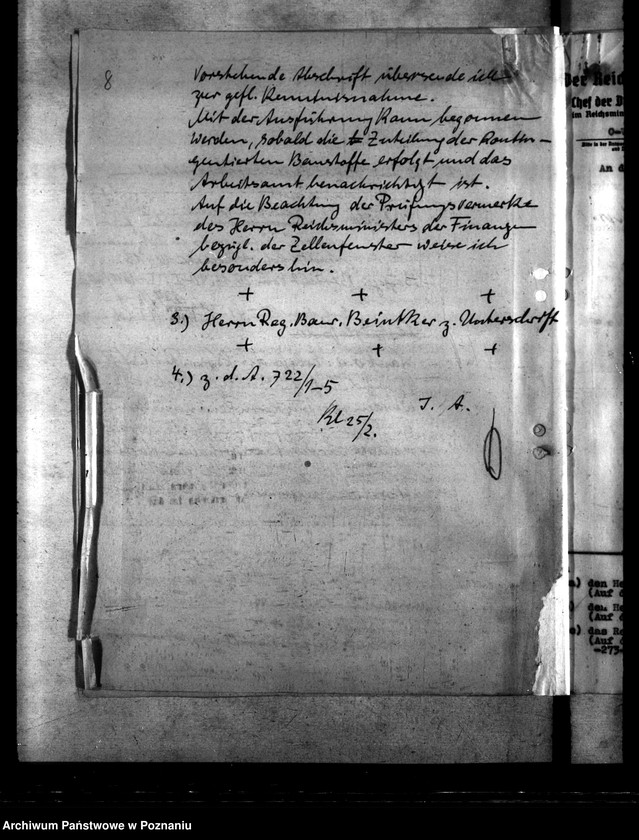 8
Vorstehende Abschrift übersende ich
zur gefl. Kenntnisnahme.
Mit der Ausführung kann begonnen
werden, sobald die Zuteilung der kontin-
gentierten Baustoffe erfolgt und das
Arbeitsamt benachrichtigt ist.
Auf die Beachtung der Prüfungsvermerke
des Herrn Reichsministers der Finanzen
bezügl. der Zellenfenster weise ich
besonders hin.
+ + +
3.) Herrn Reg. Baur. Beintker z. Unterschrift
+ + +
4.) z. d. A. 722/1-5
J. A.
25/2.
Der Reic
Chef der D
im Reichsmin
An d
) den He
(Auf d
) den He
(Auf d
) das Re
(Auf d
-273-
Archiwum Państwowe w Poznaniu